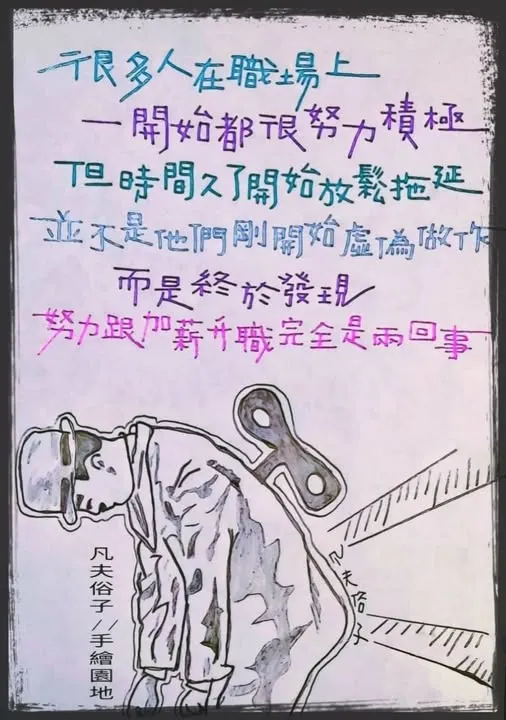 很多人在職場上
一開始都很努力積極
但時間久了開始放鬆拖延
並不是他們剛開始虛偽做作
而是終於發現
努力跟加薪升職完全是兩回事
凡夫俗子
凡夫俗子//手繪園地